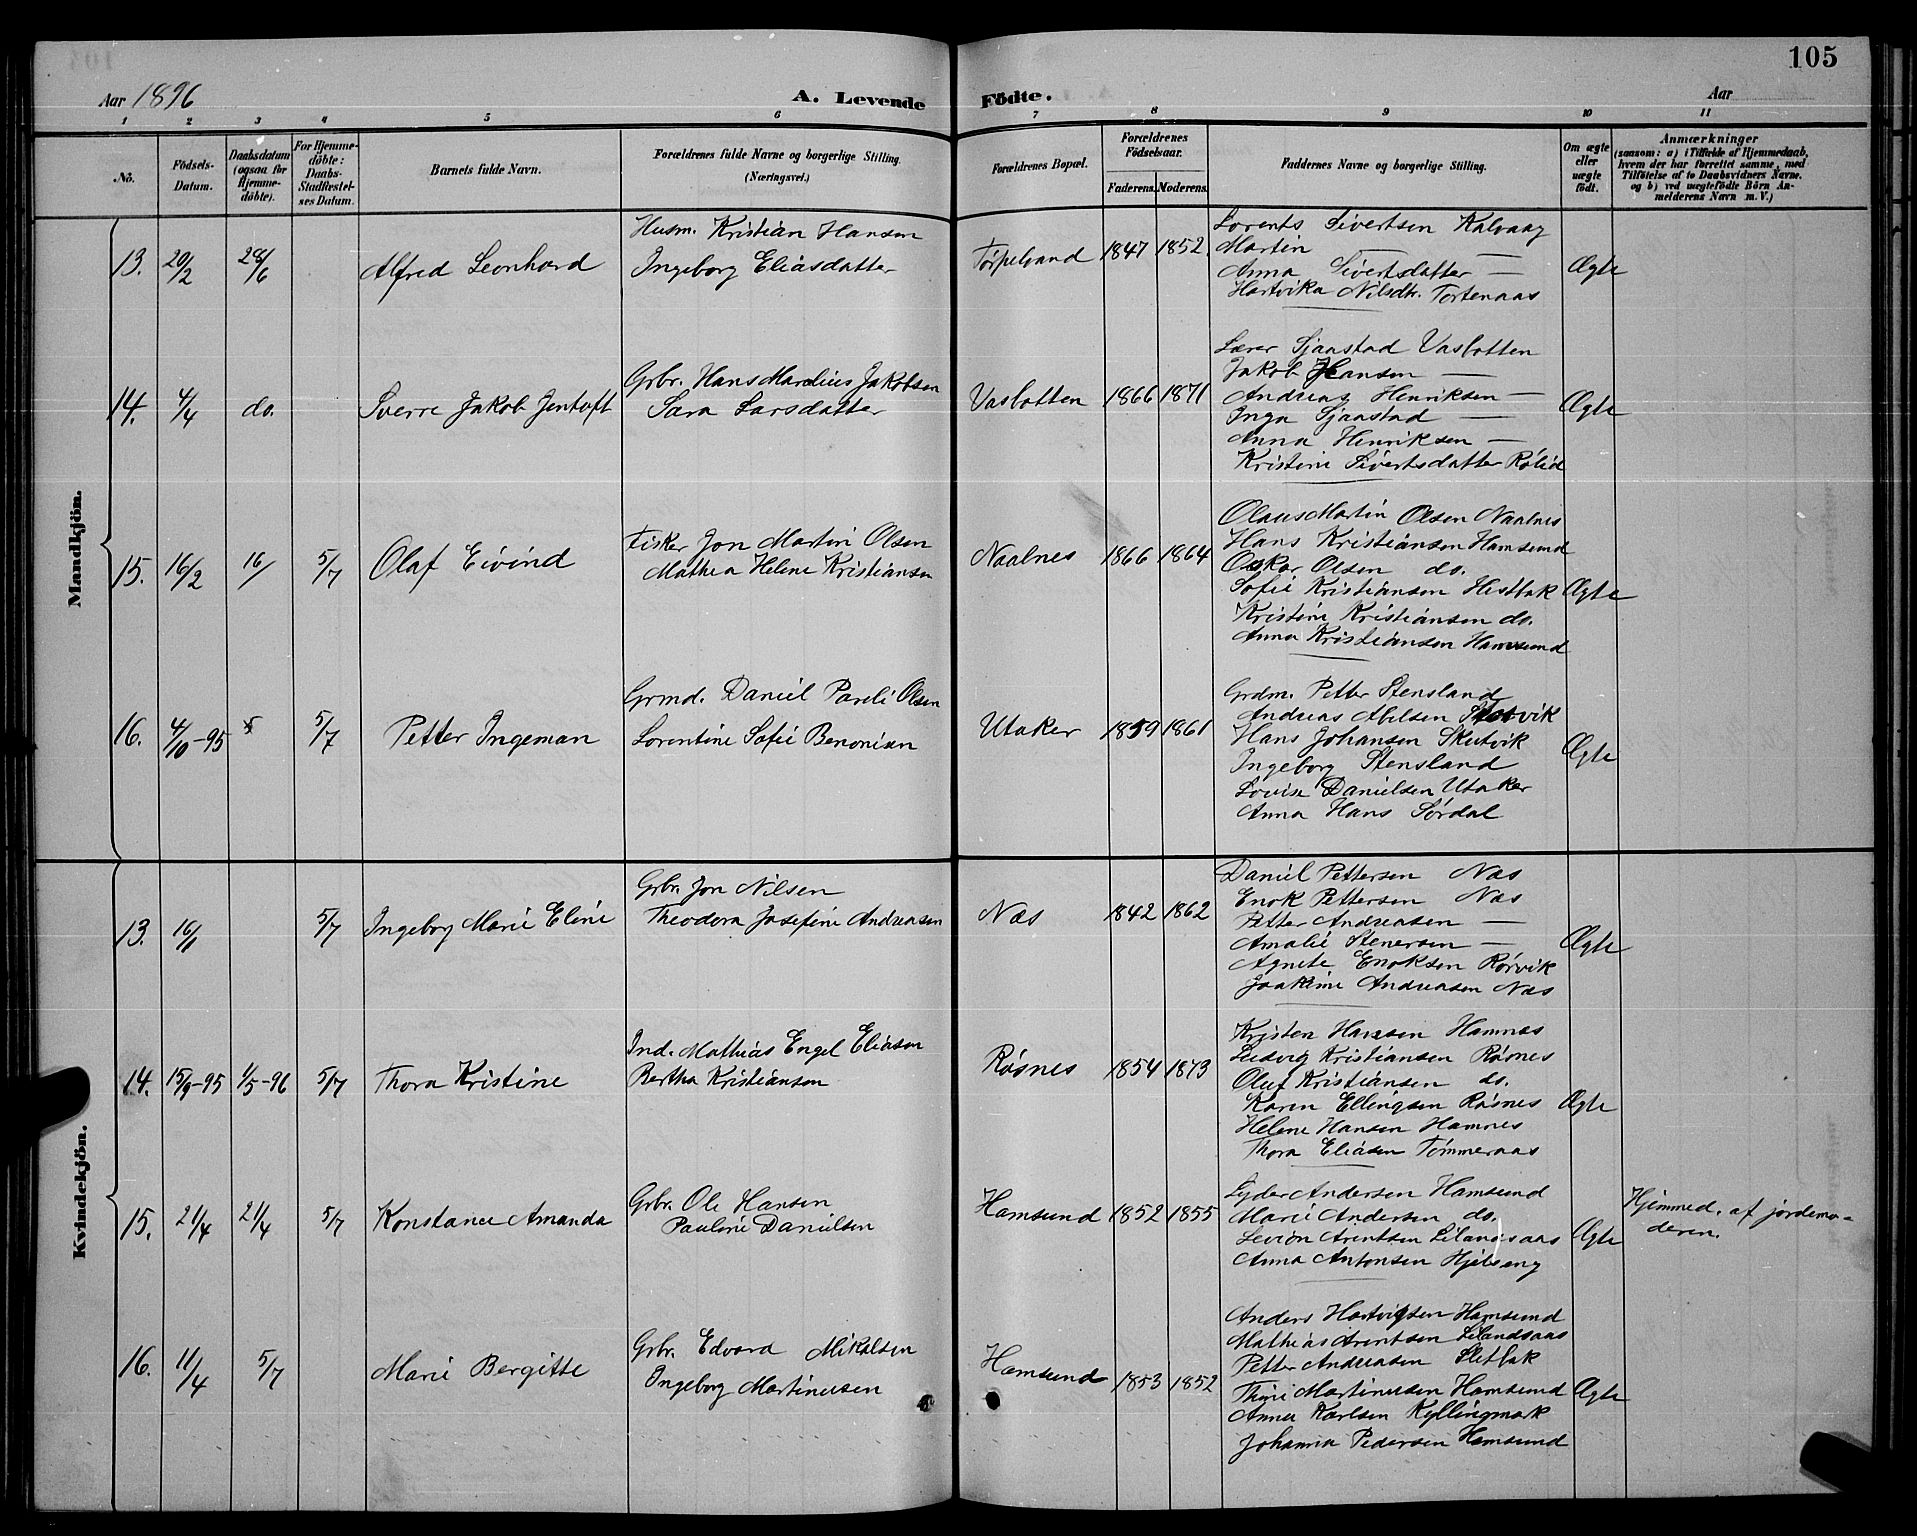 105
Aar 1896
A. Levende Födte.
Aar
1 2 3 4 5 6 7 8 9 10 11
No.
Födsels-Datum.
Daabsdatum (ogsaa for Hjemme-döbte).
For Hjemme-döbte: Daabs-Stadfæstel-ses Datum.
Barnets fulde Navn.
Forældrenes fulde Navne og borgerlige Stilling. (Næringsvei.)
Forældrenes Bopæl.
Forældrenes Födselsaar.
Faderens. Moderens.
Faddernes Navne og borgerlige Stilling.
Om ægte eller uægte födt.
Anmærkninger
(saasom: a) i Tilfælde af Hjemmedaab,
hvem der har forrettet samme, med
Tilföielse af to Daabsvidners Navne.
og b) ved uægtefödte Börn An-
melderens Navn m. V.)
Mandkjön.
13. 20/2 28/6 Alfred Leonhard
Husm. Kristian Hansen
Ingeborg Eliasdatter
Torpelvand 1847 1852.
Lorents Sivertsen Kalvaag
Martin — —
Anna Sivertsdatter —
Hartvika Nilsdtr. Tortenaas
Ægte
14. 4/4 do. Sverre Jakob Jentoft
Grbr. Hans Marelius Jakobsen
Sara Larsdatter
Vasbotten 1866 1871
Lærer Sjaastad Vasbotten
Jakob Hansen —
Andreas Henriksen —
Inga Sjaastad —
Anna Henriksen —
Kristine Sivertsdatter Rölid
Ægte
15. 16/2 16/ 5/7 Olaf Eivind
Fisker Jon Martin Olsen
Mathea Helene Kristiansen
Naalnes 1866 1864
Olaus Martin Olsen Naalnes
Hans Kristiansen Hamsund
Oskar Olsen do.
Sofie Kristiansen Hestbak
Kristine Kristiansen do.
Anna Kristiansen Hamsund
Ægte
16. 4/10-95 5/7 Petter Ingeman
Grmd. Daniel Pareli Olsen
Lorentine Sofie Benonisen
Utaker 1859 1861
Grdm. Petter Stensland
Andreas Abelsen
Hans Johansen Skutvik
Ingeborg Stensland
Lovise Danielsen Utaker
Anna Hans Sördal
Ægte
Kvindekjön.
13. 16/1 5/7 Ingeborg Marie Eline
Grbr. Jon Nilsen
Theodora Josefine Andreasen
Næs 1842 1862
Daniel Pettersen Næs
Enok Pettersen Næs
Petter Andreasen —
Amalie Stenersen —
Agnete Enoksen Rörvik
Joakime Andreasen Næs
Ægte
14. 15/9-95 1/5-96 5/7 Thora Kristine
Ind. Mathias Engel Eliasen
Bertha Kristiansen
Rösnes 1854 1873
Kristen Hansen Hamnæs
Ludvig Kristiansen Rösnes
Oluf Kristiansen do.
Karen Ellingsen Rösnes
Helene Hansen Hamnes
Thora Eliasen Tömmeraas
Ægte
15. 21/4 21/4 5/7 Konstance Amanda
Grbr. Ole Hansen
Pauline Danielsen
Hamsund 1852 1855
Lyder Andersen Hamsund
Marie Andersen do.
Levion Arentsen Lilandsaas
Anna Antonsen Hjelseng
Ægte
Hjemmed. af jordemo-
deren.
16. 11/4 5/7 Marie Bergitte
Grbr. Edvard Mikalsen
Ingeborg Martinusen
Hamsund 1853 1852
Anders Hartvigsen Hamsund
Mathias Arentsen Lilandsaas
Petter Andreasen Sletbak
Thine Martinusen Hamsund
Anna Karlsen Kyllingmark
Johanna Pedersen Hamsund
Ægte